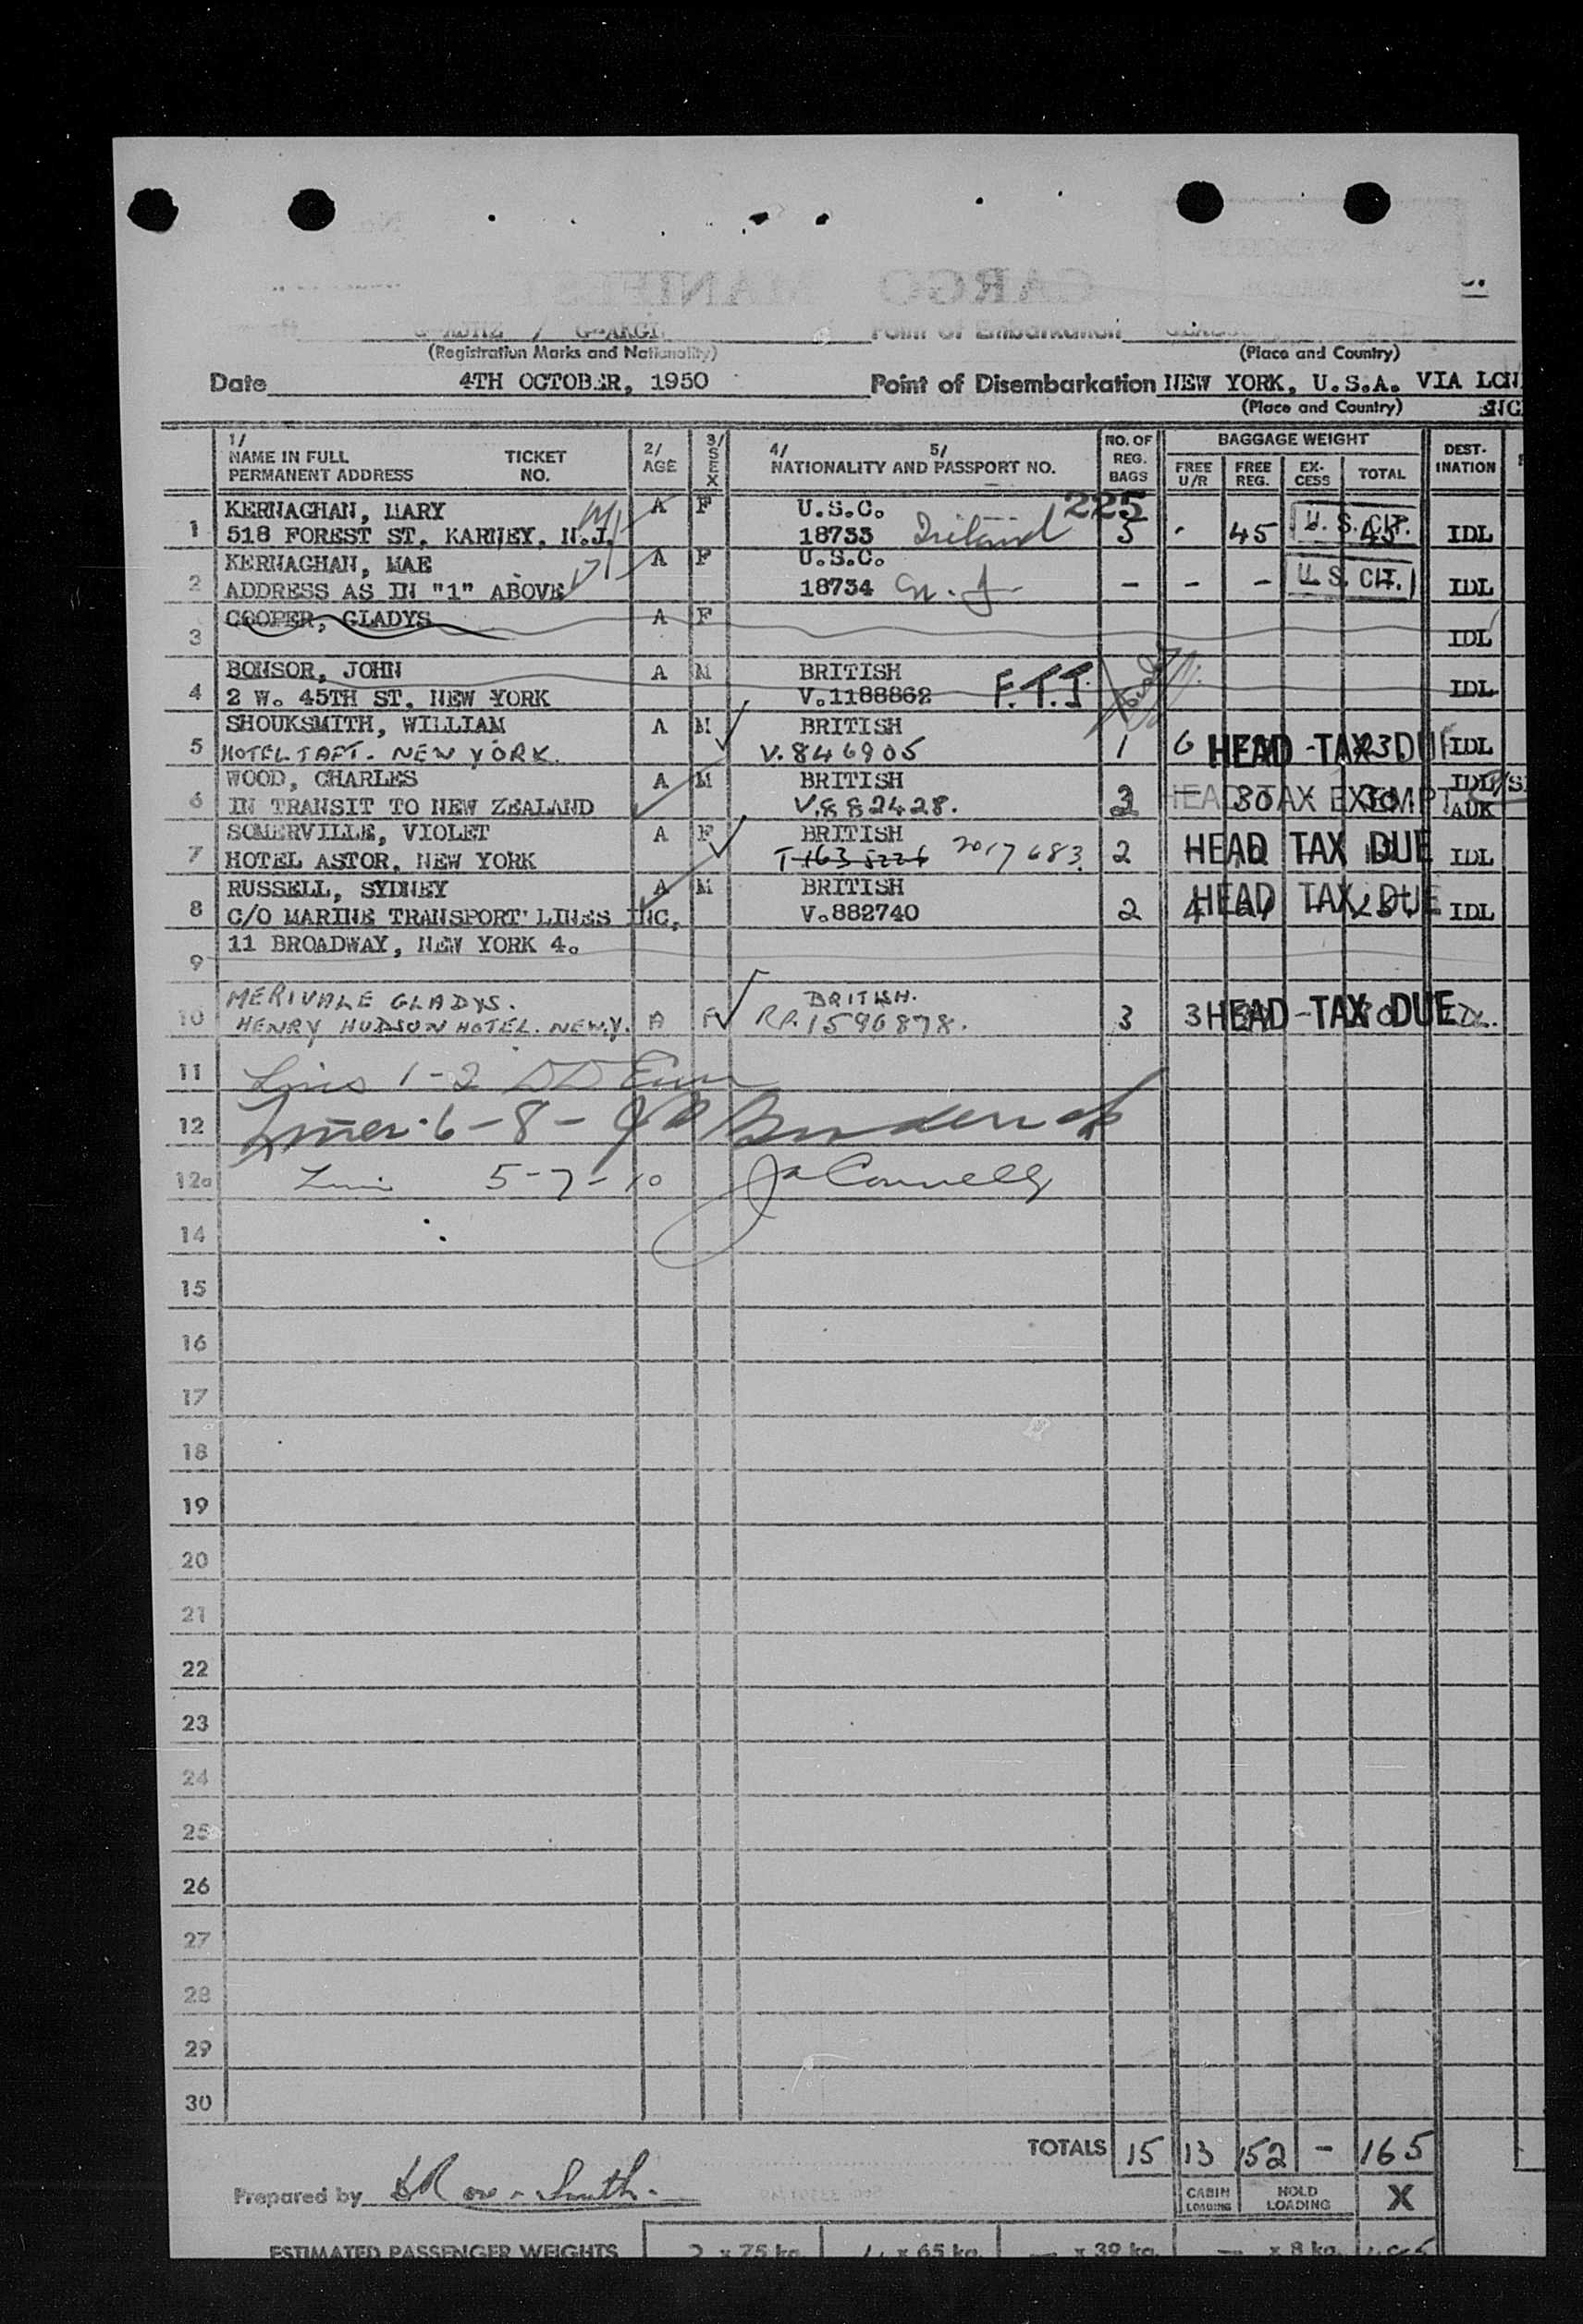 (Registration Marks and Nationality)
(Place and Country)
Date 4TH OCTOBER, 1950 Point of Disembarkation NEW YORK, U.S.A. VIA
(Place and Country)
1/ NAME IN FULL PERMANENT ADDRESS TICKET NO. 2/ AGE 3/ SEX 4/ 5/ NATIONALITY AND PASSPORT NO. NO. OF REG. BAGS BAGGAGE WEIGHT FREE U/R FREE REG. EX- CESS TOTAL DEST- INATION
225
KERNAGHAN, MARY A F U.S.C.
1 518 FOREST ST, KARNEY, N.J. 18733 Ireland 3 - 45 U.S. CIT. 45 IDL
KERNAGHAN, MAE A F U.S.C.
2 ADDRESS AS IN "1" ABOVE 18734 N.J. - - - U.S. CIT. IDL
COOPER, GLADYS A F
3 IDL
BONSOR, JOHN A M BRITISH
4 2 W. 45TH ST, NEW YORK V.1188862 F.T.J IDL
SHOUKSMITH, WILLIAM A M BRITISH
5 HOTEL TAFT. NEW YORK. V.846905 1 6 HEAD TAX DUE IDL
WOOD, CHARLES A M BRITISH IDL
6 IN TRANSIT TO NEW ZEALAND V.882428. 2 30 HEAD TAX EXEMPT 30 AUK
SOMERVILLE, VIOLET A F BRITISH
7 HOTEL ASTOR, NEW YORK 2017683. 2 HEAD TAX DUE IDL
RUSSELL, SYDNEY A M BRITISH
8 C/O MARINE TRANSPORT LINES INC, V.882740 2 4 HEAD TAX DUE IDL
11 BROADWAY, NEW YORK 4.
9
MERIVALE GLADYS. BRITISH.
10 HENRY HUDSON HOTEL. NEW.Y. A F R.P. 1596878. 3 3 HEAD TAX DUE IDL.
11 Lines 1-2
12 6-8-
12a Line 5-7-10 Connelly
14
15
16
17
18
19
20
21
22
23
24
25
26
27
28
29
30
TOTALS 15 13 152 - 165
Prepared by
CABIN LOADING HOLD LOADING X
ESTIMATED PASSENGER WEIGHTS 2 x 75 kg. 4 x 65 kg. — x 39 kg. — x 8 kg.